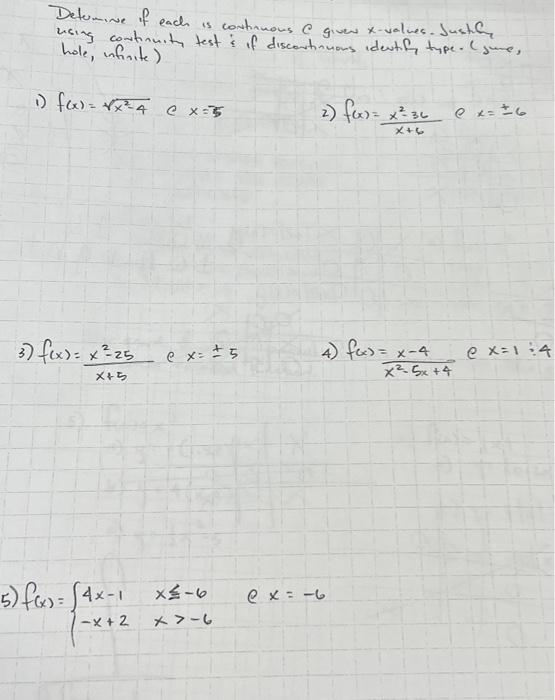 Determine if each is continuous @ given x-values. Justify
using continuity test & if discontinuous identify type. (jump,
hole, infinite)
1) f(x) = √x²-4 @ x=5
2) f(x) = x²-36 @ x = ±6
x+6
3) f(x) = x²-25 @ x = ±5
x+5
4) f(x) = x-4 @ x=1 & 4
x²-5x+4
5) f(x) = { 4x-1 x≤-6 @ x = -6
-x+2 x>-6